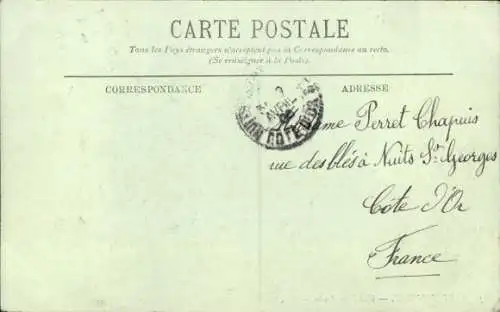 CARTE POSTALE
Tous les Pays étrangers n'acceptent pas la Correspondance au recto.
(Se renseigner à la Poste).
CORRESPONDANCE
ADRESSE
AVRIL
COTE D'OR
Perret Chapuis
rue des blés à Nuits St Georges
Côte d'Or
France